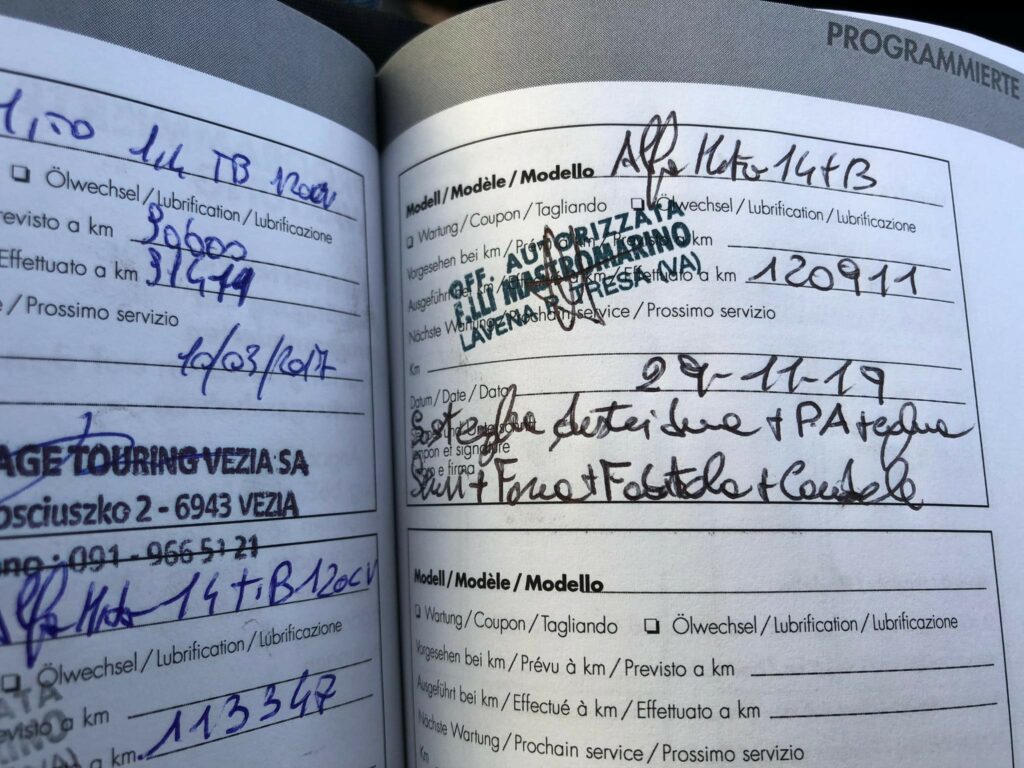 Mito 1,4 TB 120cv
Ölwechsel / Lubrification / Lubrificazione
revisto a km 30000
Effettuato a km 31479
e / Prossimo servizio
10/03/2017
AGE TOURING VEZIA SA
osciuszko 2 - 6943 VEZIA
ono : 091 - 966 51 21
Alfa Mito 14 T.B 120cv
Ölwechsel / Lubrification / Lubrificazione
evisto a km
a km 113347
PROGRAMMIERTE
Modell / Modèle / Modello Alfa Mito 14 TB
Wartung / Coupon / Tagliando Ölwechsel / Lubrification / Lubrificazione
Vorgesehen bei km / Prévu a km
OFF. AUTORIZZATA
F.LLI MASTROMARINO
LAVENA P. TRESA (VA)
Ausgeführt bei km / Effettuato a km 120911
Nächste Wartung / Prochain service / Prossimo servizio
Km
Datum / Date / Data 29-11-19
+ PA +
+ + + Candele
Modell / Modèle / Modello
Wartung / Coupon / Tagliando Ölwechsel / Lubrification / Lubrificazione
Vorgesehen bei km / Prévu à km / Previsto a km
Ausgeführt bei km / Effectué à km / Effettuato a km
Nächste Wartung / Prochain service / Prossimo servizio
Km